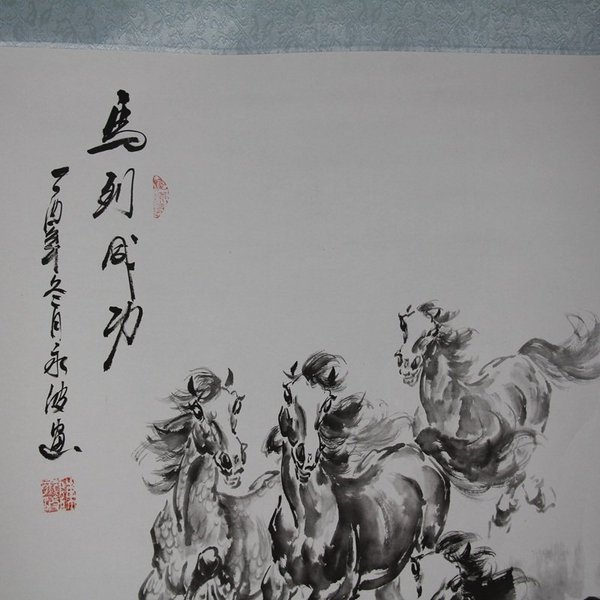 馬到成功
丁酉年冬月永波画